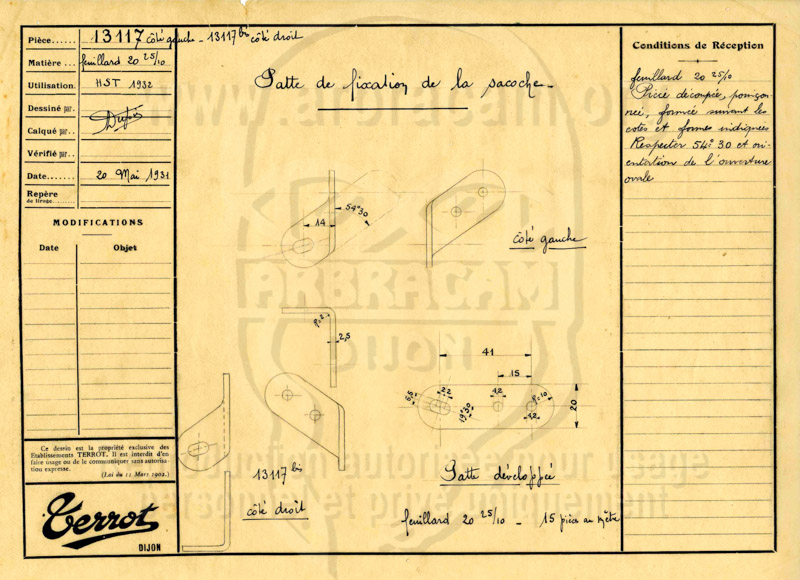 Pièce...... 13117 côté gauche - 13117 bis côté droit
Matière... feuillard 20 25/10
Utilisation. HST 1932
Dessiné par.
Calqué par..
Vérifié par..
Date....... 20 Mai 1931
Repère
de tirage
MODIFICATIONS
Date Objet
Ce dessin est la propriété exclusive des
Etablissements TERROT. Il est interdit d'en
faire usage ou de le communiquer sans autorisa-
tion expresse.
(Loi du 11 Mars 1902.)
Terrot
DIJON
Patte de fixation de la sacoche
54°30
14
côté gauche
2,5
41
15
2,2
4,2
R=10
6,5
19°30
4,2
20
13117 bis
côté droit
Patte développée
feuillard 20 25/10 - 15 pièces au mètre
Conditions de Réception
feuillard 20 25/10
Pièce découpée, poinçon-
née, formée suivant les
cotes et formes indiquées
Respecter 54° 30 et ori-
entation de l'ouverture
ovale
ARBRACAM
DIJON
reproduction autorisée usage
personnel et privé uniquement